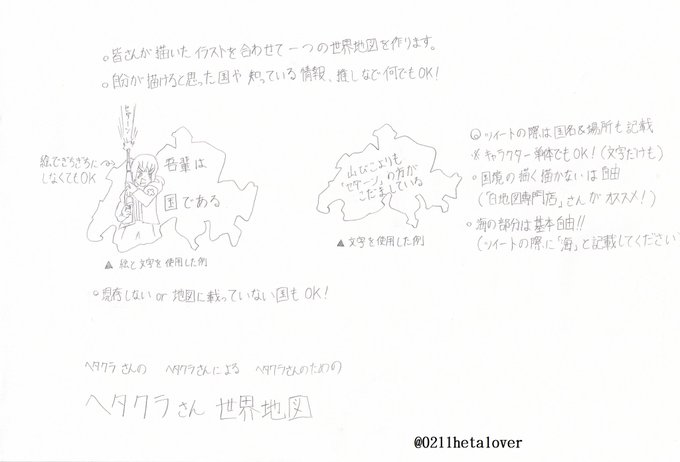 ○皆さんが描いたイラストを合わせて一つの世界地図を作ります。
○自分が描けると思った国や知っている情報、推しなど何でもOK!
絵でぎちぎちに
しなくてもOK
吾輩は
国である
▲絵と文字を使用した例
山びこよりも
「ピャーン」の方が
こだましている
▲文字を使用した例
◎ツイートの際は国名&場所も記載
※キャラクター単体でもOK!(文字だけも)
○国境の描く描かないは自由
(「白地図専門店」さんがオススメ!)
○海の部分は基本自由!!
(ツイートの際に「海」と記載してください
○現存しない or 地図に載っていない国もOK!
ヘタクラさんの ヘタクラさんによる ヘタクラさんのための
ヘタクラさん 世界地図
@0211hetalover